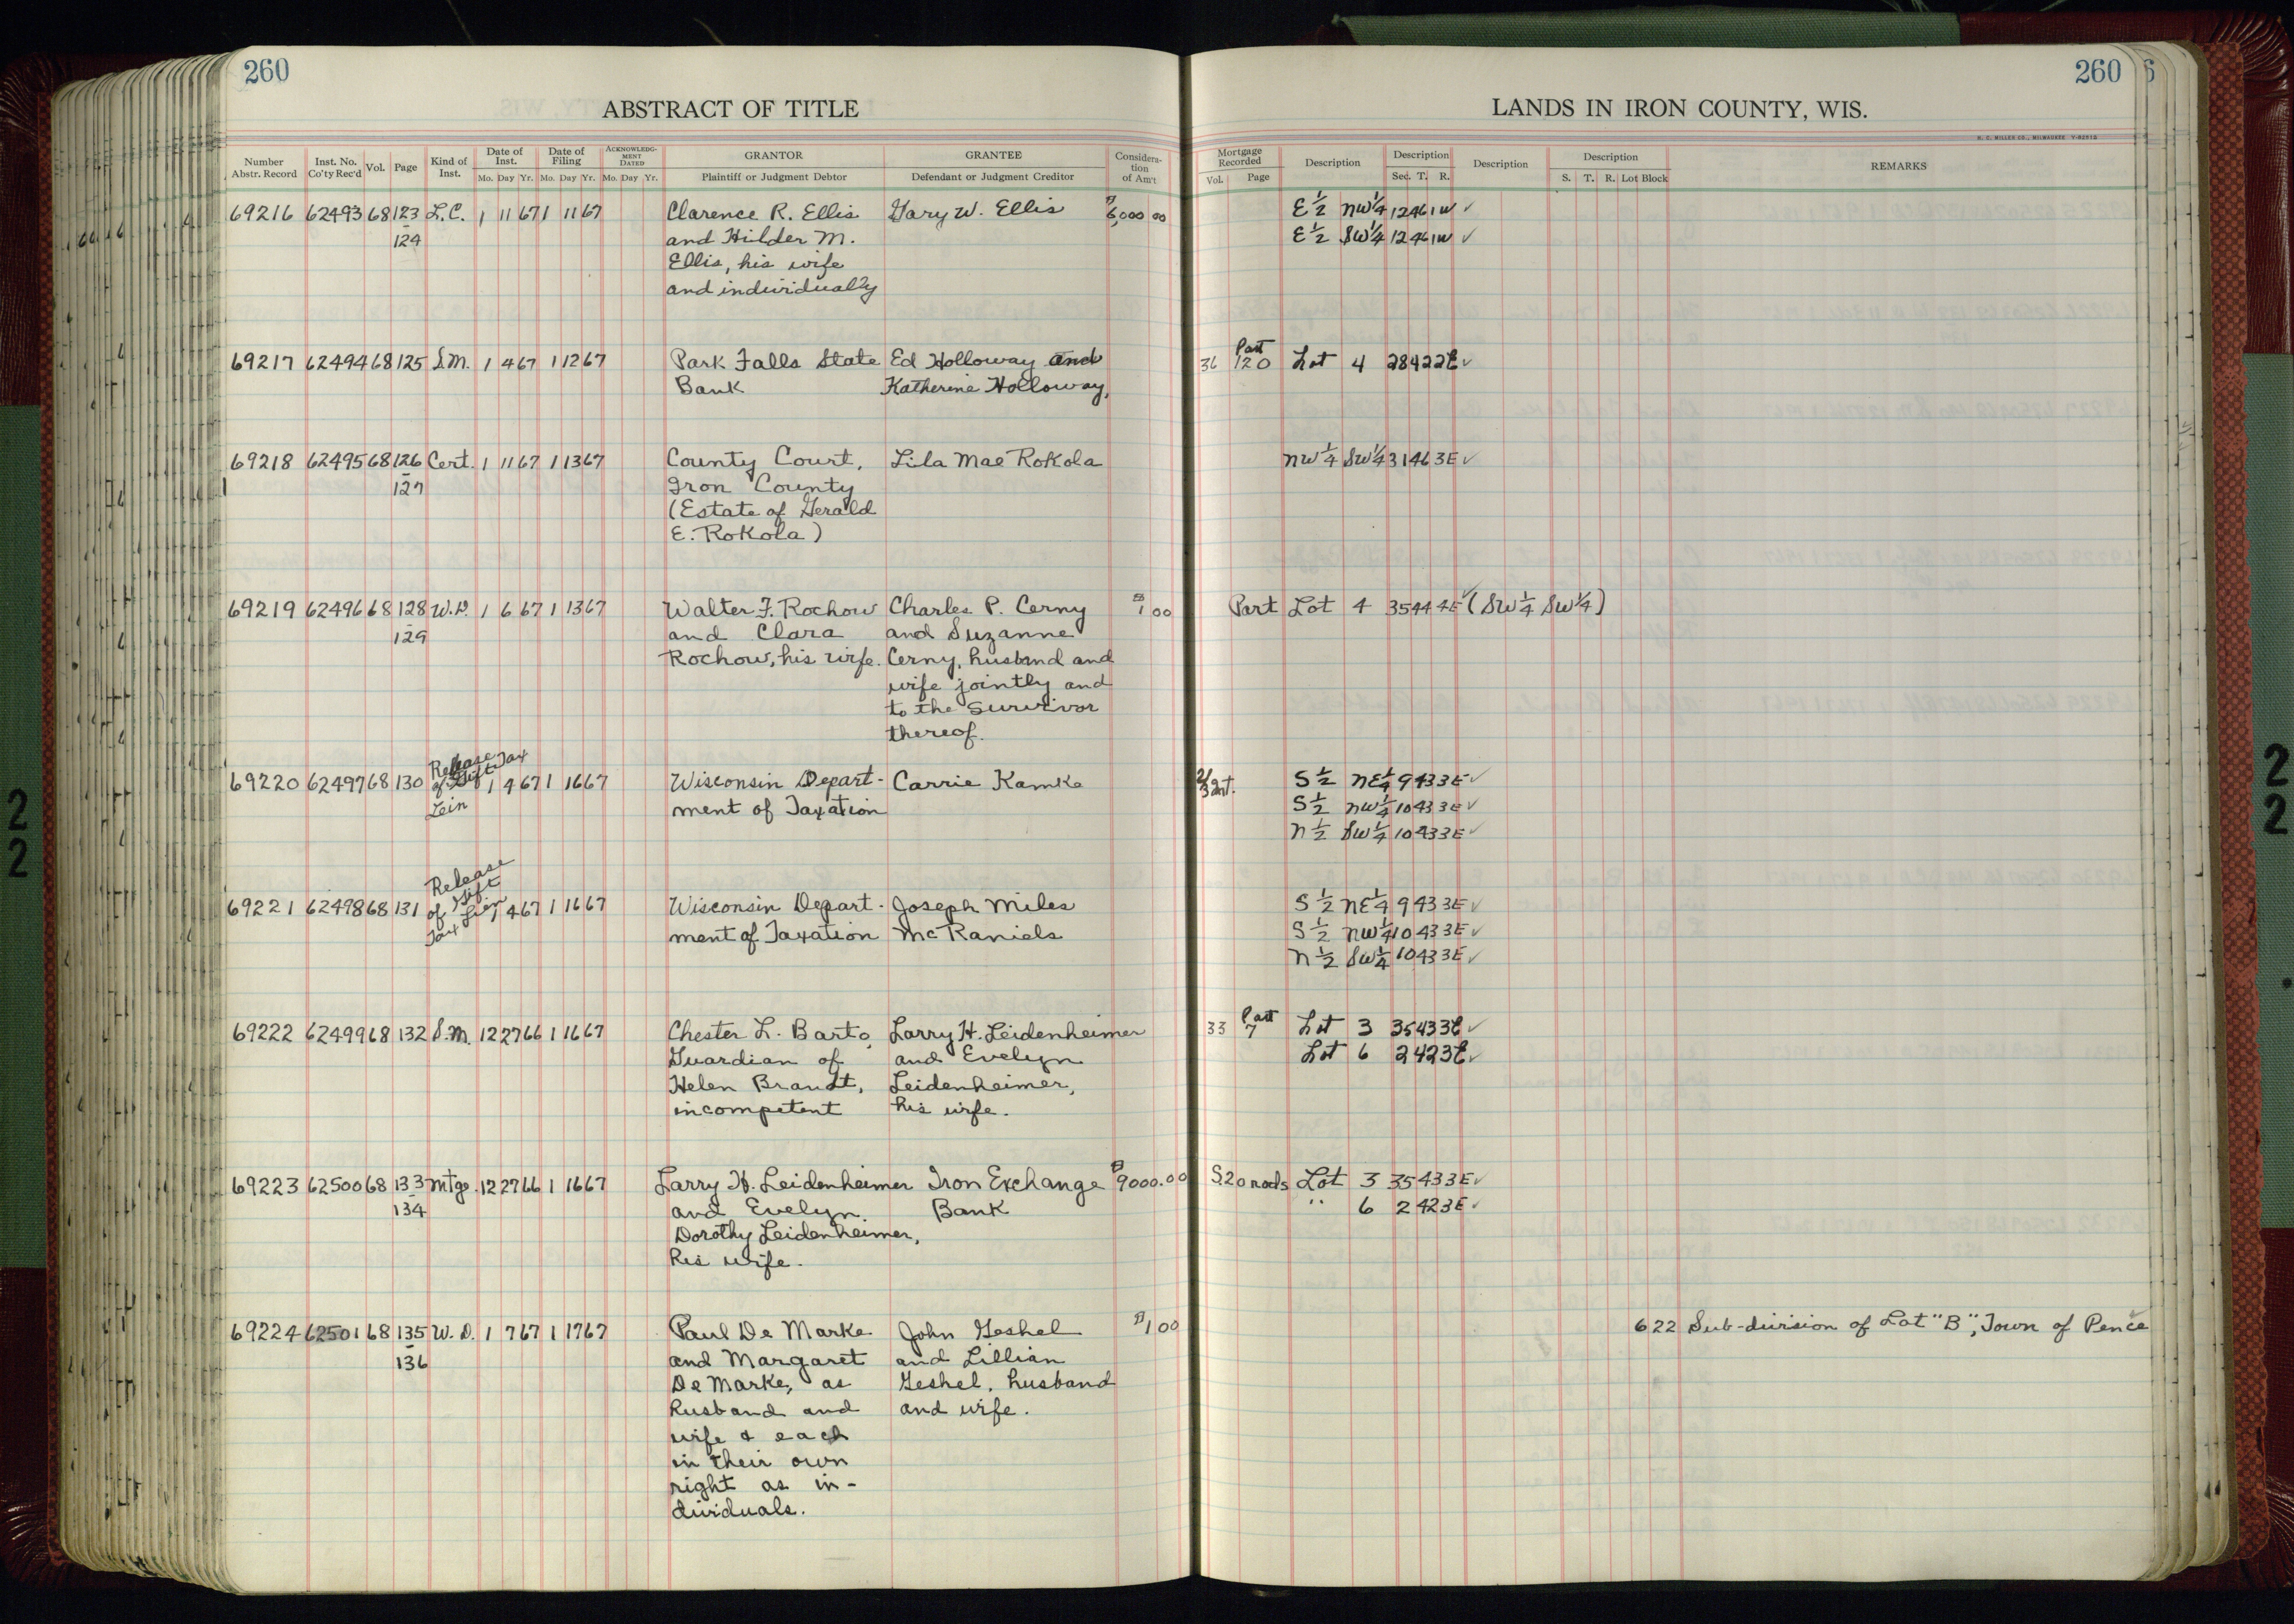 260
ABSTRACT OF TITLE
260
LANDS IN IRON COUNTY, WIS.
H. C. MILLER CO., MILWAUKEE Y-82515
Number Abstr. Record Inst. No. Co'ty Rec'd Vol. Page Kind of Inst. Date of Inst. Mo. Day Yr. Date of Filing Mo. Day Yr. ACKNOWLEDGMENT DATED Mo. Day Yr. GRANTOR Plaintiff or Judgment Debtor GRANTEE Defendant or Judgment Creditor Consideration of Am't
Mortgage Recorded Vol. Page Description Description Sec. T. R. Description Description S. T. R. Lot Block REMARKS
69216 62493 68 123 L.C. 1 11 67 1 11 67 Clarence R. Ellis Gary W. Ellis $6,000 00 E 1/2 NW 1/4 12 46 1W ✓
124 and Hilder M. E 1/2 SW 1/4 12 46 1W ✓
Ellis, his wife
and individually
69217 62494 68 125 S.M. 1 4 67 1 12 67 Park Falls State Ed Holloway and 36 120 Part Lot 4 28 42 2E ✓
Bank Katherine Holloway,
69218 62495 68 126 Cert. 1 11 67 1 13 67 County Court, Lila Mae Rokola NW 1/4 SW 1/4 31 46 3E ✓
127 Iron County
(Estate of Gerald
E. Rokola)
69219 62496 68 128 W.D. 1 6 67 1 13 67 Walter F. Rochow Charles P. Cerny $1 00 Part Lot 4 35 44 4E ✓ (SW 1/4 SW 1/4)
129 and Clara and Suzanne
Rochow, his wife. Cerny, husband and
wife jointly and
to the survivor
thereof.
69220 62497 68 130 Release of Gift Tax Lein 1 4 67 1 16 67 Wisconsin Depart- Carrie Kamke 2/3 Int. S 1/2 NE 1/4 9 43 3E ✓
ment of Taxation S 1/2 NW 1/4 10 43 3E ✓
N 1/2 SW 1/4 10 43 3E ✓
69221 62498 68 131 Release of Gift Tax Lien 1 4 67 1 16 67 Wisconsin Depart- Joseph Miles S 1/2 NE 1/4 9 43 3E ✓
ment of Taxation McRaniels S 1/2 NW 1/4 10 43 3E ✓
N 1/2 SW 1/4 10 43 3E ✓
69222 62499 68 132 S.M. 12 27 66 1 16 67 Chester L. Barto, Larry H. Leidenheimer 33 7 Part Lot 3 35 43 3E ✓
Guardian of and Evelyn Lot 6 2 42 3E ✓
Helen Brandt, Leidenheimer,
incompetent his wife.
69223 62500 68 133 Mtge. 12 27 66 1 16 67 Larry H. Leidenheimer Iron Exchange $9000.00 S.20 rods Lot 3 35 43 3E ✓
134 and Evelyn Bank " 6 2 42 3E ✓
Dorothy Leidenheimer,
his wife.
69224 62501 68 135 W.D. 1 7 67 1 17 67 Paul De Marke John Geshel $1 00 6 22 Sub-division of Lot "B", Town of Pence ✓
136 and Margaret and Lillian
De Marke, as Geshel, husband
husband and and wife.
wife & each
in their own
right as in-
dividuals.
22
22